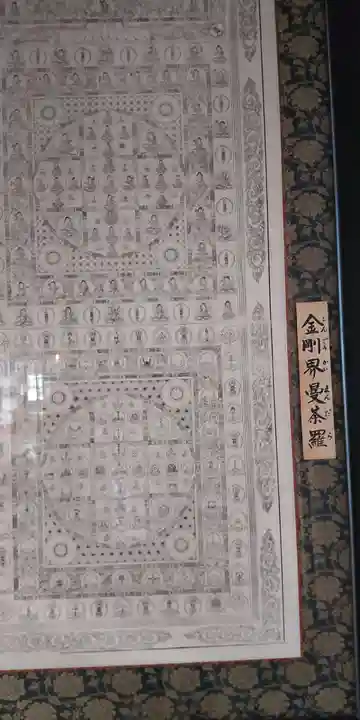 金剛界曼荼羅
こんごうかいまんだら